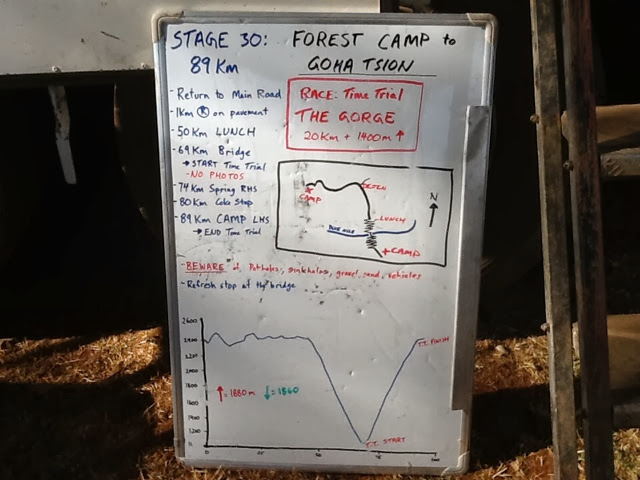 STAGE 30: FOREST CAMP to
89 Km GOHA TSION
- Return to Main Road
- 1Km R on pavement
- 50 Km LUNCH
- 69 Km Bridge
→ START Time Trial
- NO PHOTOS
- 74 Km Spring RHS
- 80 Km Coke Stop
- 89 Km CAMP LHS
→ END Time Trial
RACE: Time Trial
THE GORGE
20 Km + 1400m ↑
CAMP
DEJEN
N
LUNCH
BLUE NILE
CAMP
- BEWARE of Potholes, sinkholes, gravel, sand, vehicles
- Refresh stop at the bridge
2600
2400
2000
1800
1600
1400
1200
0
↑=1880m ↓=1860
T.T. FINISH
T.T. START
0 25 50 75 100